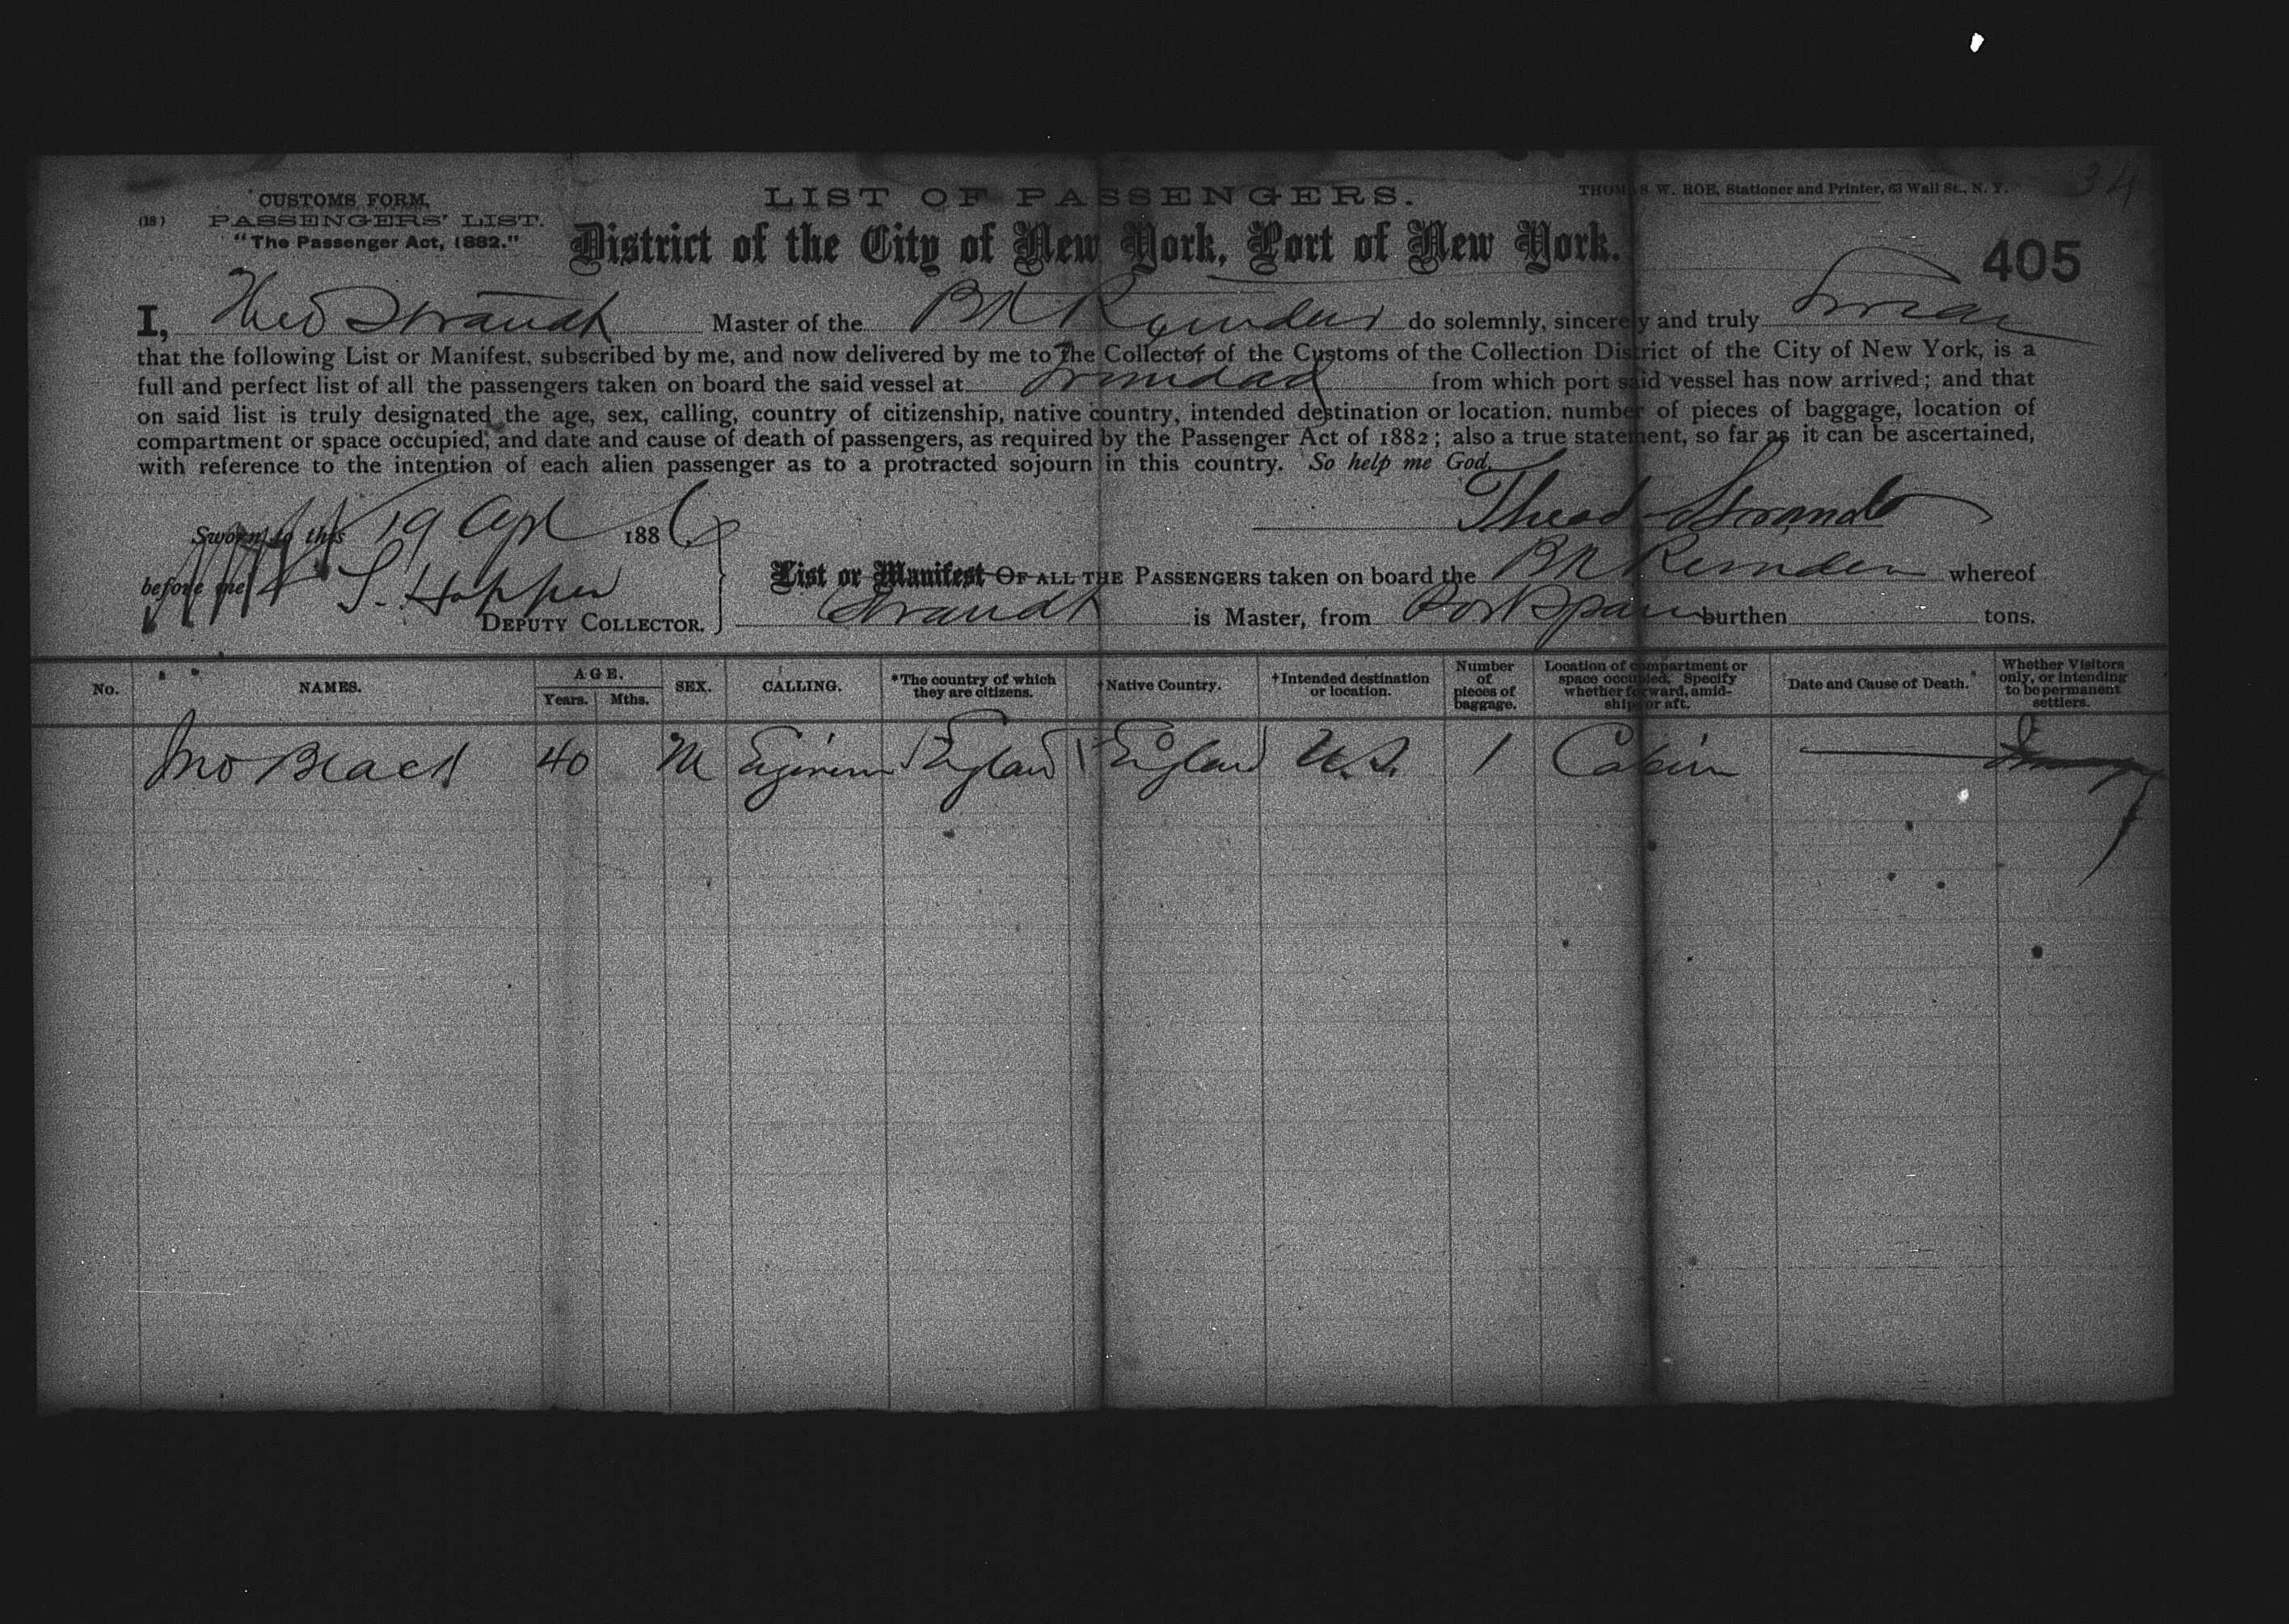 34
CUSTOMS FORM,
(18) PASSENGERS' LIST.
"The Passenger Act, 1882."
LIST OF PASSENGERS.
THOMAS W. ROE, Stationer and Printer, 63 Wall St., N. Y.
District of the City of New York, Port of New York.
405
I, Theo Strandt Master of the do solemnly, sincerely and truly swear
that the following List or Manifest, subscribed by me, and now delivered by me to the Collector of the Customs of the Collection District of the City of New York, is a
full and perfect list of all the passengers taken on board the said vessel at Trinidad from which port said vessel has now arrived; and that
on said list is truly designated the age, sex, calling, country of citizenship, native country, intended destination or location, number of pieces of baggage, location of
compartment or space occupied, and date and cause of death of passengers, as required by the Passenger Act of 1882; also a true statement, so far as it can be ascertained,
with reference to the intention of each alien passenger as to a protracted sojourn in this country. So help me God.
Sworn to this 19 Apl 1886
Theod Strandt
before me S. Hopper
DEPUTY COLLECTOR.
List or Manifest OF ALL THE PASSENGERS taken on board the whereof
Strandt is Master, from Port Spain burthen tons.
No. NAMES. AGE. Years. Mths. SEX. CALLING. *The country of which they are citizens. †Native Country. †Intended destination or location. Number of pieces of baggage. Location of compartment or space occupied. Specify whether forward, amidships or aft. Date and Cause of Death. Whether Visitors only, or intending to be permanent settlers.
Jno Black 40 M Engineer England England U.S. 1 Cabin